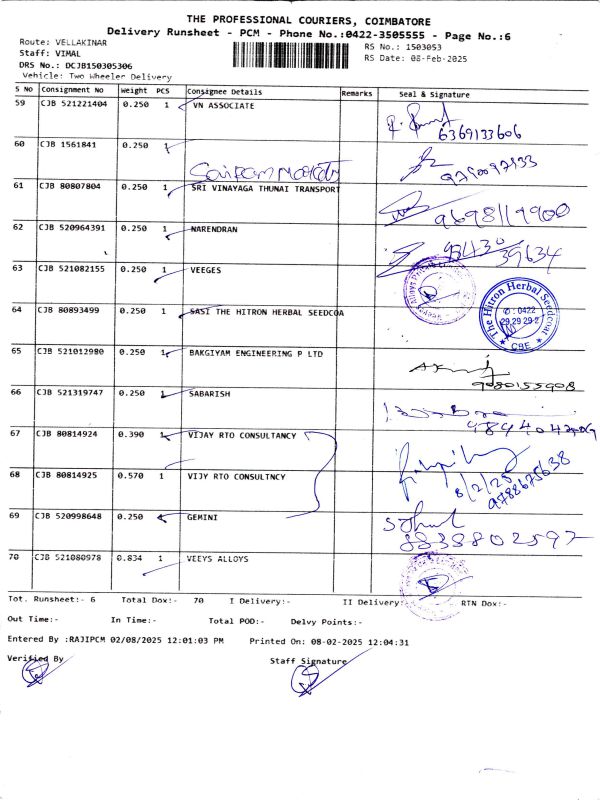 THE PROFESSIONAL COURIERS, COIMBATORE
Delivery Runsheet - PCM - Phone No.:0422-3505555 - Page No.:6
Route: VELLAKINAR
RS No.: 1503053
Staff: VIMAL
RS Date: 08-Feb-2025
DRS No.: DCJB150305306
Vehicle: Two Wheeler Delivery
S No Consignment No Weight PCS Consignee Details Remarks Seal & Signature
59 CJB 521221404 0.250 1 VN ASSOCIATE
6369133606
60 CJB 1561841 0.250 1
9790097933
61 CJB 80807804 0.250 1 SRI VINAYAGA THUNAI TRANSPORT
9698119900
62 CJB 520964391 0.250 1 NARENDRAN
93430 39634
63 CJB 521082155 0.250 1 VEEGES
64 CJB 80893499 0.250 1 SASI THE HITRON HERBAL SEEDCOA
The Hitron Herbal Seedcoat
✆ : 0422
29 29 29 2
★ CBE ★
65 CJB 521012980 0.250 1 BAKGIYAM ENGINEERING P LTD
9080155908
66 CJB 521319747 0.250 1 SABARISH
67 CJB 80814924 0.390 1 VIJAY RTO CONSULTANCY
68 CJB 80814925 0.570 1 VIJY RTO CONSULTNCY
8/2/25
9788675638
69 CJB 520998648 0.250 1 GEMINI
8838802597
70 CJB 521080978 0.834 1 VEEYS ALLOYS
Tot. Runsheet:- 6 Total Dox:- 70 I Delivery:- II Delivery:- RTN Dox:-
Out Time:- In Time:- Total POD:- Delvy Points:-
Entered By :RAJIPCM 02/08/2025 12:01:03 PM Printed On: 08-02-2025 12:04:31
Verified By Staff Signature